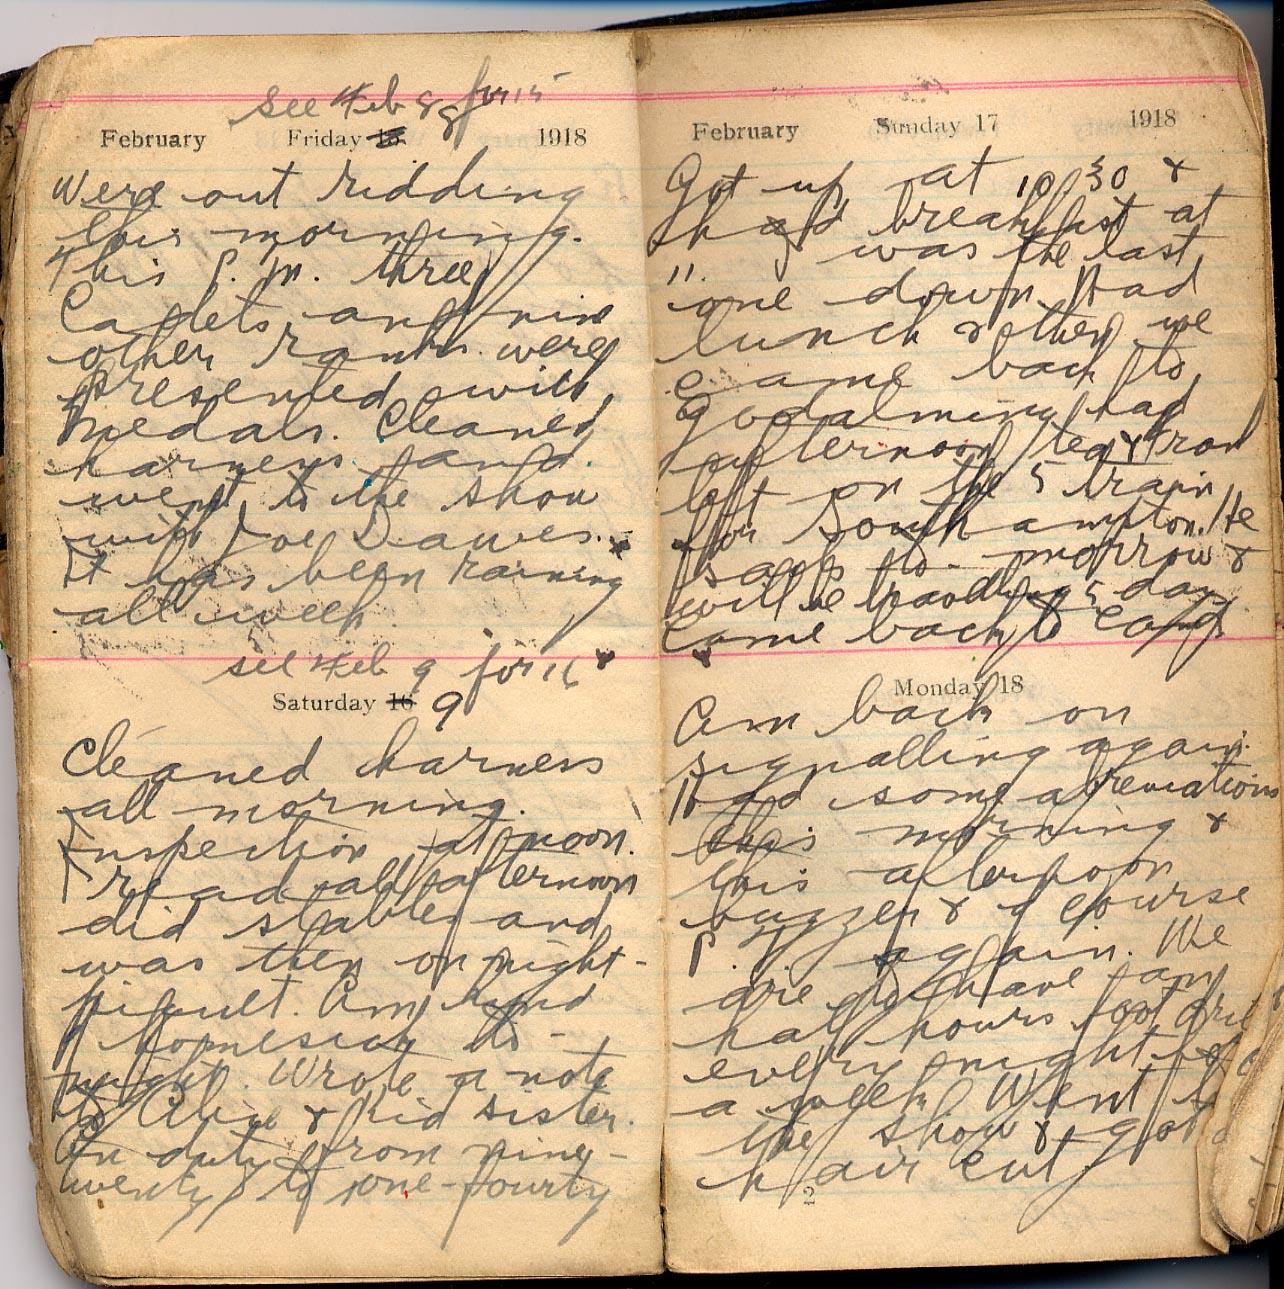 see Feb 8 for 15
February Friday 15 8 1918
Were out ridding
this morning.
This P. M. three
Cadets and nine
other ranks were
presented with
medals. Cleaned
harness and
went to the show
with Joe Dawes.
It has been raining
all week.
see Feb 9 for 16
Saturday 16 9
Cleaned harness
all morning.
Inspection at noon.
I read all afternoon
did stables and
was then on night-
piquit. Am kind
of homesick to-
night. Wrote a note
to Alice & kid sister.
On duty from nine-
twenty to one-fourty
February Sunday 17 1918
Got up at 10.30 &
had breakfast at
11. I was the last
one down. Had
lunch & then we
came back to
Godalming had
afternoon tea &
left on the 5 train
for Southampton. He
sails to-morrow &
will be 5 days
Came back to camp
Monday 18
Am back on
signalling again.
Had some abreviations
this morning &
this afternoon
buzzer & of course
P. T. again. We
are to have an
half hours foot drill
every night
a week. Went to
the show & got a
hair cut.
12